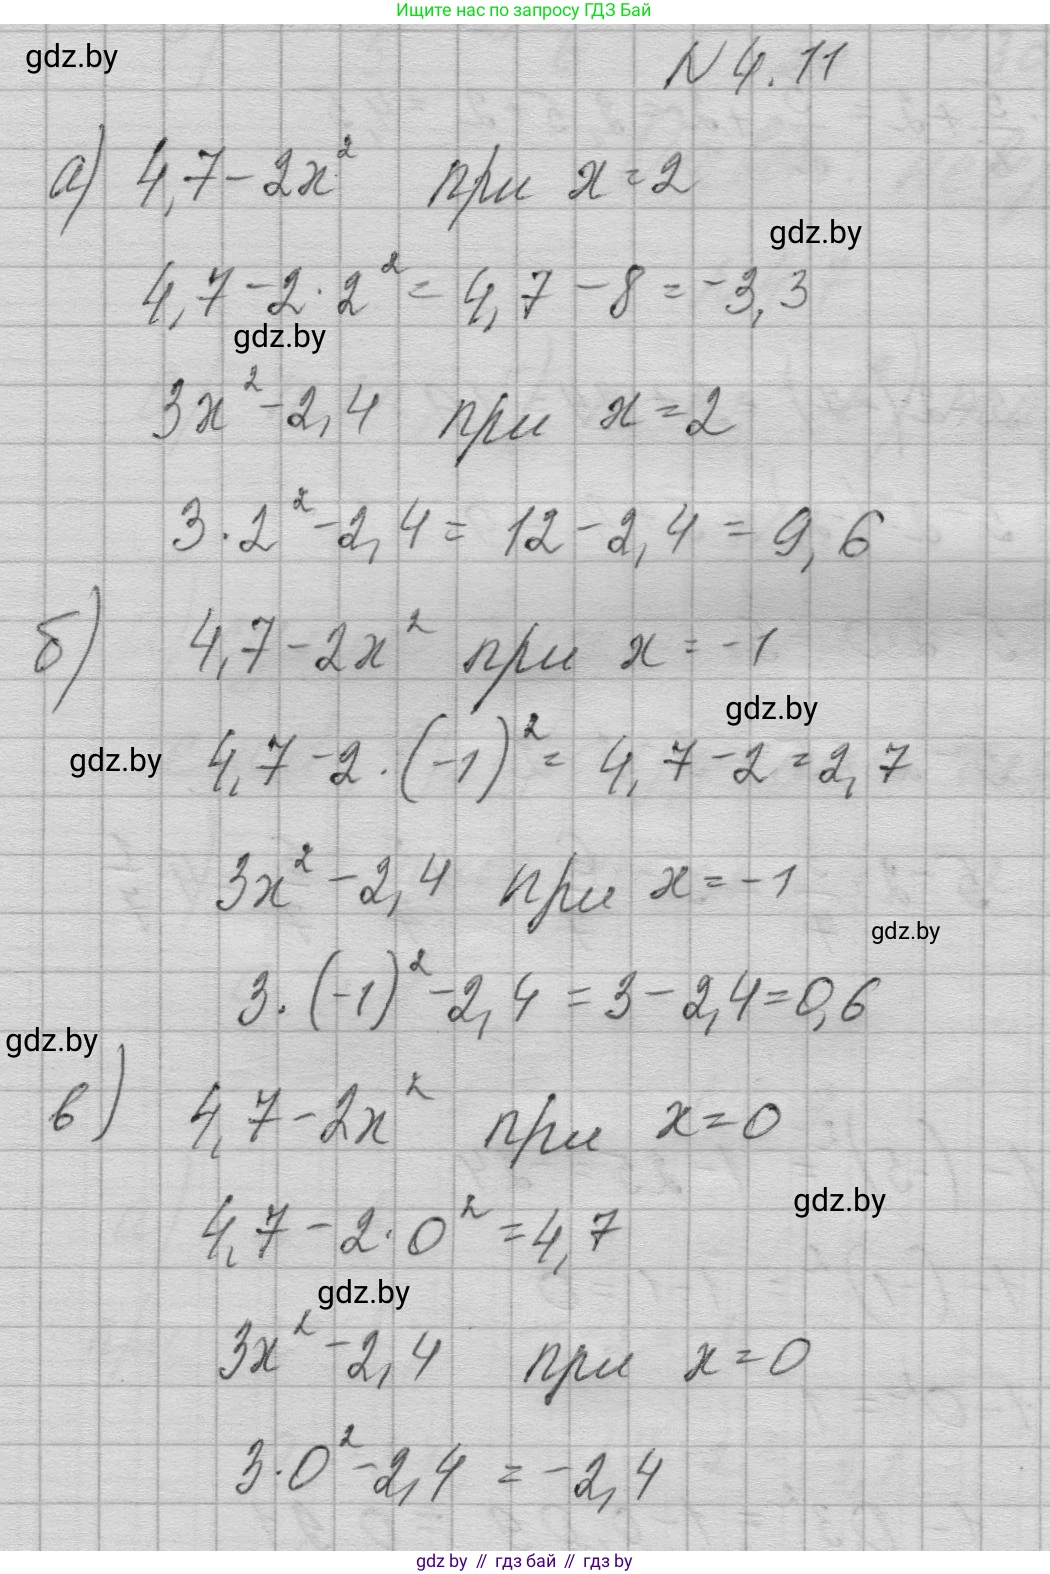 Ищите нас по запросу ГДЗ Бай
gdz.by
N 4.11
а) 4,7 - 2x² при x = 2
gdz.by
4,7 - 2 · 2² = 4,7 - 8 = -3,3
gdz.by
3x² - 2,4 при x = 2
3 · 2² - 2,4 = 12 - 2,4 = 9,6
б) 4,7 - 2x² при x = -1
gdz.by
gdz.by
4,7 - 2 · (-1)² = 4,7 - 2 = 2,7
3x² - 2,4 при x = -1
gdz.by
3 · (-1)² - 2,4 = 3 - 2,4 = 0,6
gdz.by
в) 4,7 - 2x² при x = 0
gdz.by
4,7 - 2 · 0² = 4,7
gdz.by
3x² - 2,4 при x = 0
3 · 0² - 2,4 = -2,4
gdz by // гдз бай // гдз by